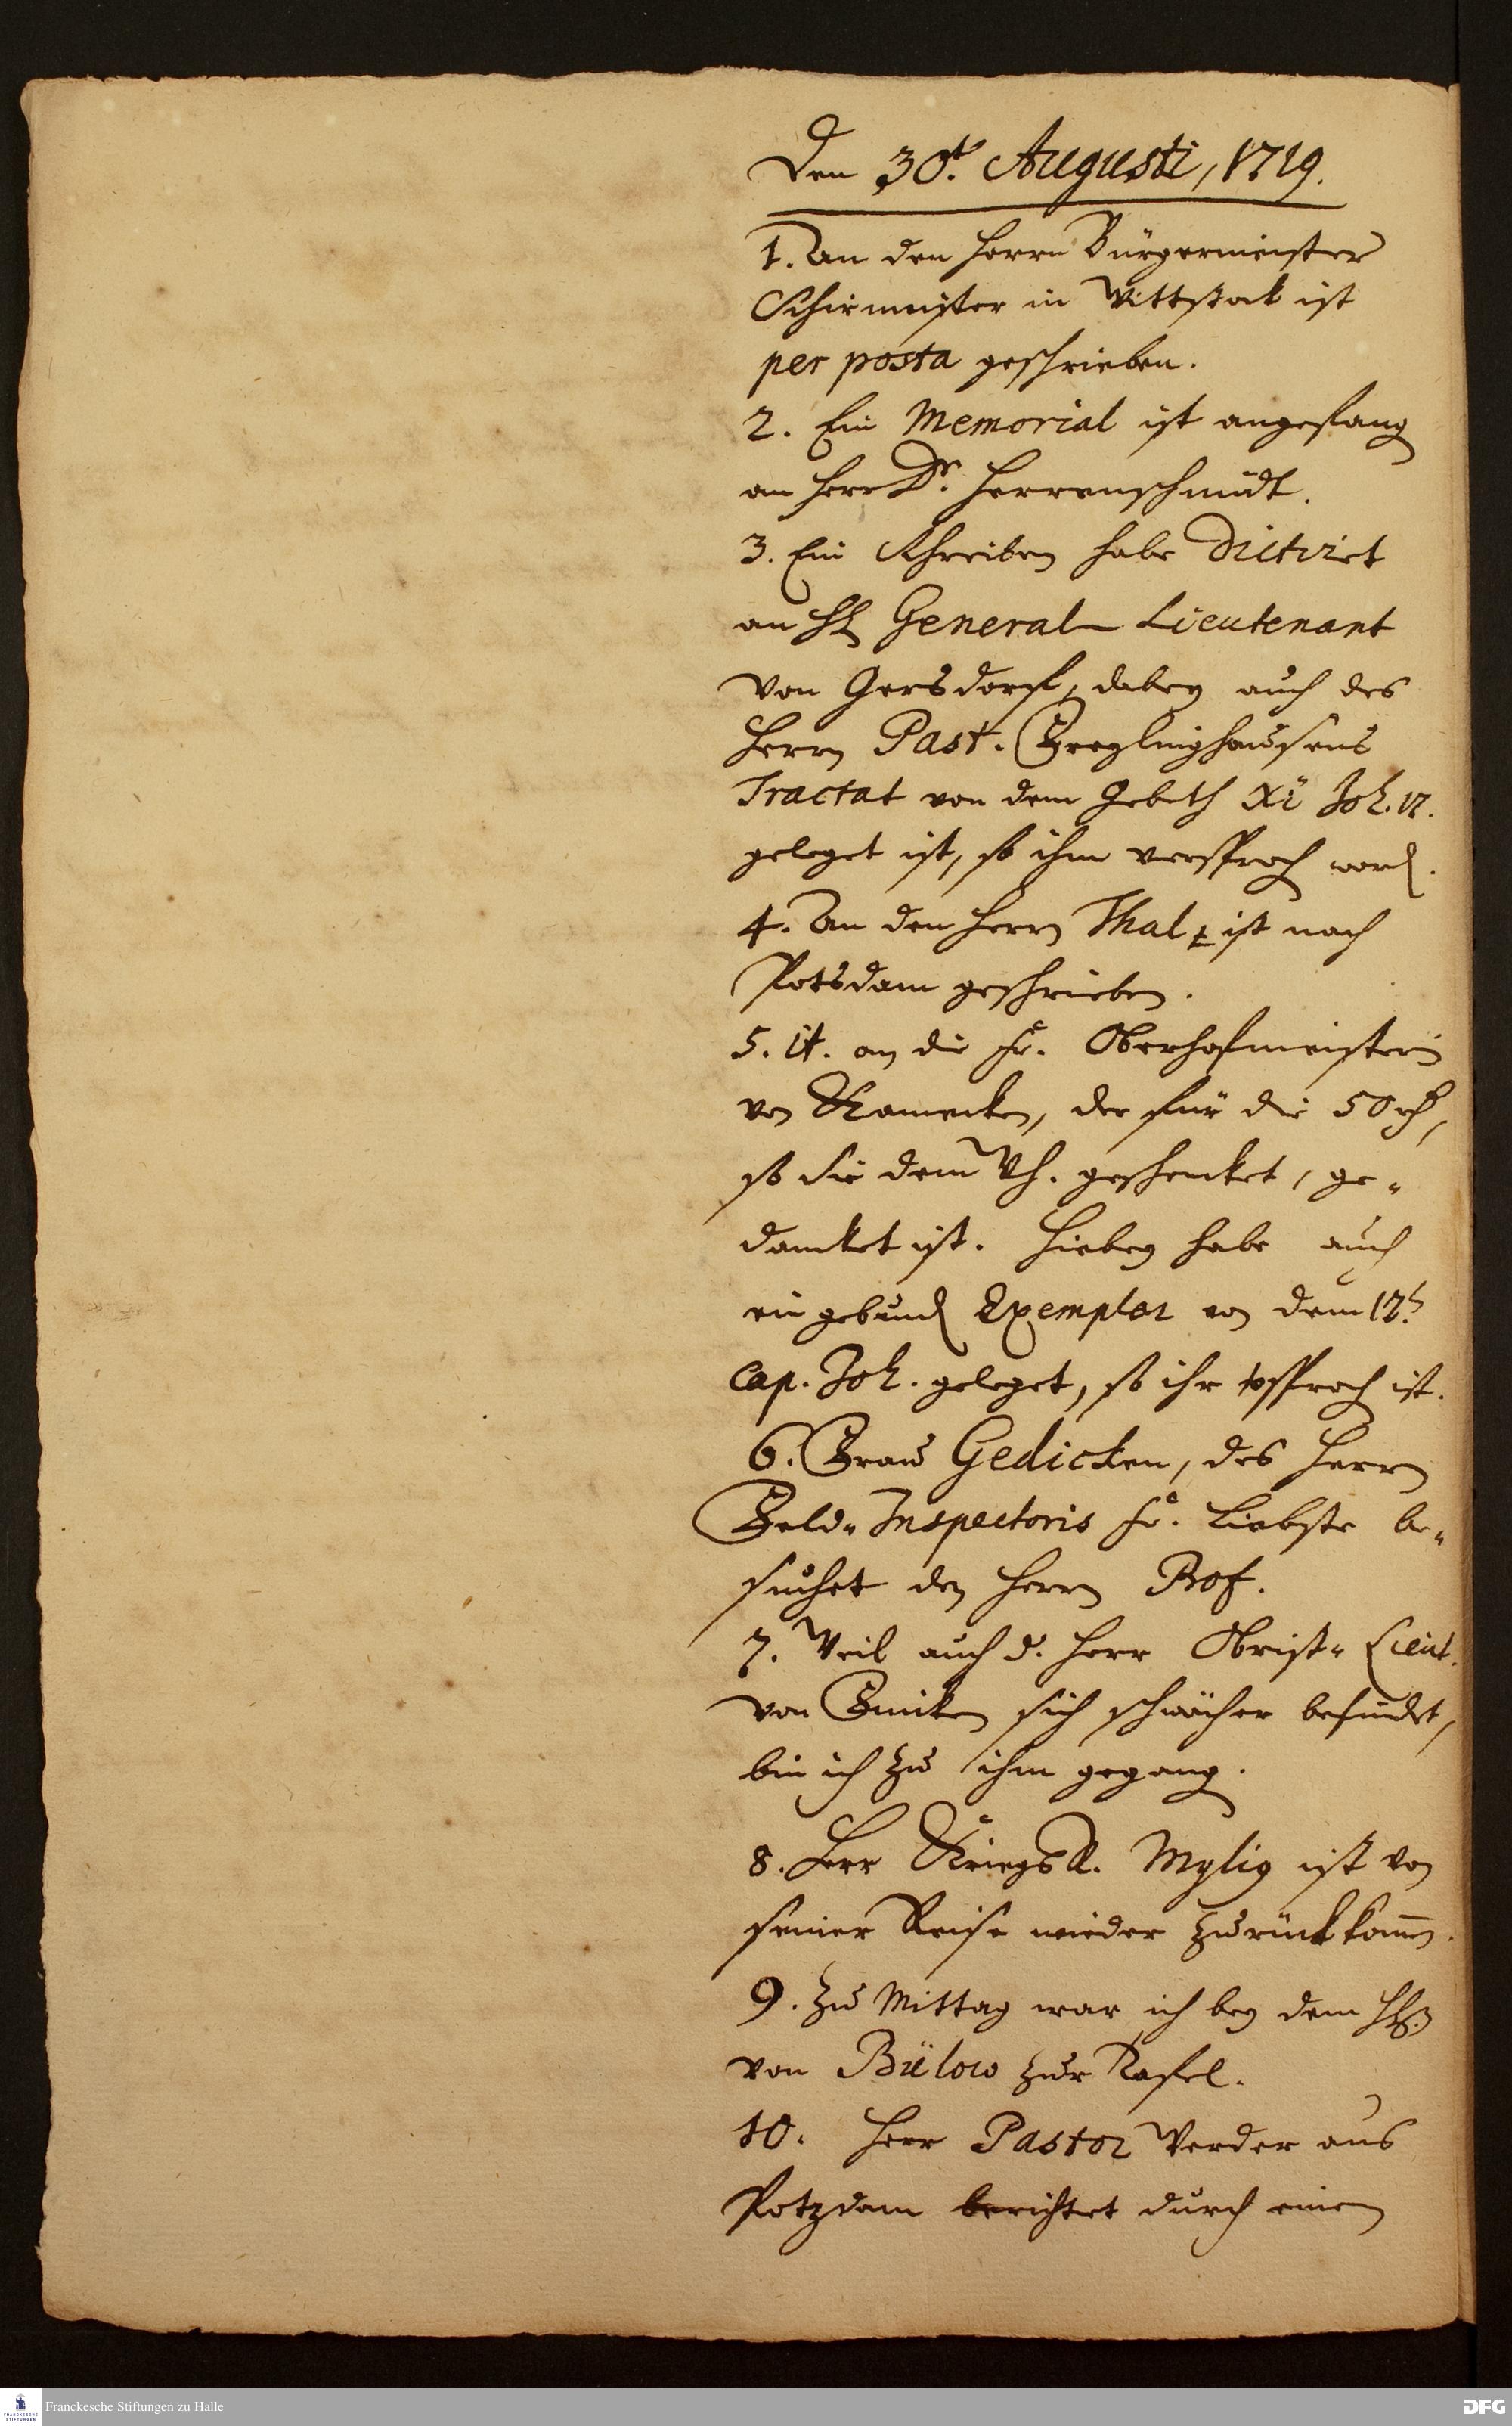 Den 30t. Augusti, 1719.
1. An den Herrn Bürgermeister
Schirmeister in Wittstock ist
per posta geschrieben.
2. Ein Memorial ist angefang
an Herr Dr. Herrenschmidt.
3. Ein Schreiben habe dictirt
an HE General-Lieutenant
von Gersdorf, dabey auch des
Herrn Past. Freylinghausens
Tractat von dem Gebeth Xi Joh. 17.
geleget ist, so ihm versproch word.
4. An den Herrn Thal ist nach
Potsdam geschrieben.
5. it. an die Fr. Oberhofmeisterin
von Kamecken, der für die 50 rh,
so sie dem Wh. geschencket, ge-
dancket ist. Hiebey habe auch
ein gebund Exemplar von dem 17.
cap. Joh. geleget, so ihr vsproch ist.
6. Frau Gedicken, des Herrn
Feld-Inspectoris Fr. Liebste be-
suchet den Herrn Prof.
7. Weil auch d. Herr Obrist-Lieut.
von sich schwächer befindet,
bin ich zu ihm gegang.
8. Herr KriegsR. Mylig ist von
seiner Reise wieder zurück komm.
9. Zu Mittag war ich bey dem
von Bülow zur Tafel.
10. Herr Pastor Werder aus
Potzdam berichtet durch einen
Franckesche Stiftungen zu Halle
DFG